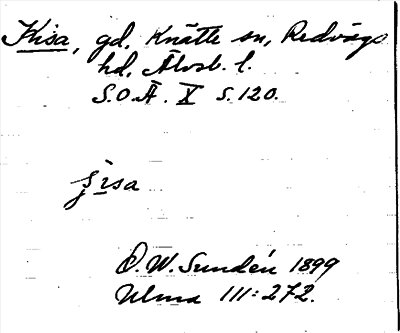 Kisa, gd, Knätte sn, Redvägs
hd, Älvsb. l.
S.O.Ä. X S. 120.
O.W. Sundén 1899
Ulma 111:272.